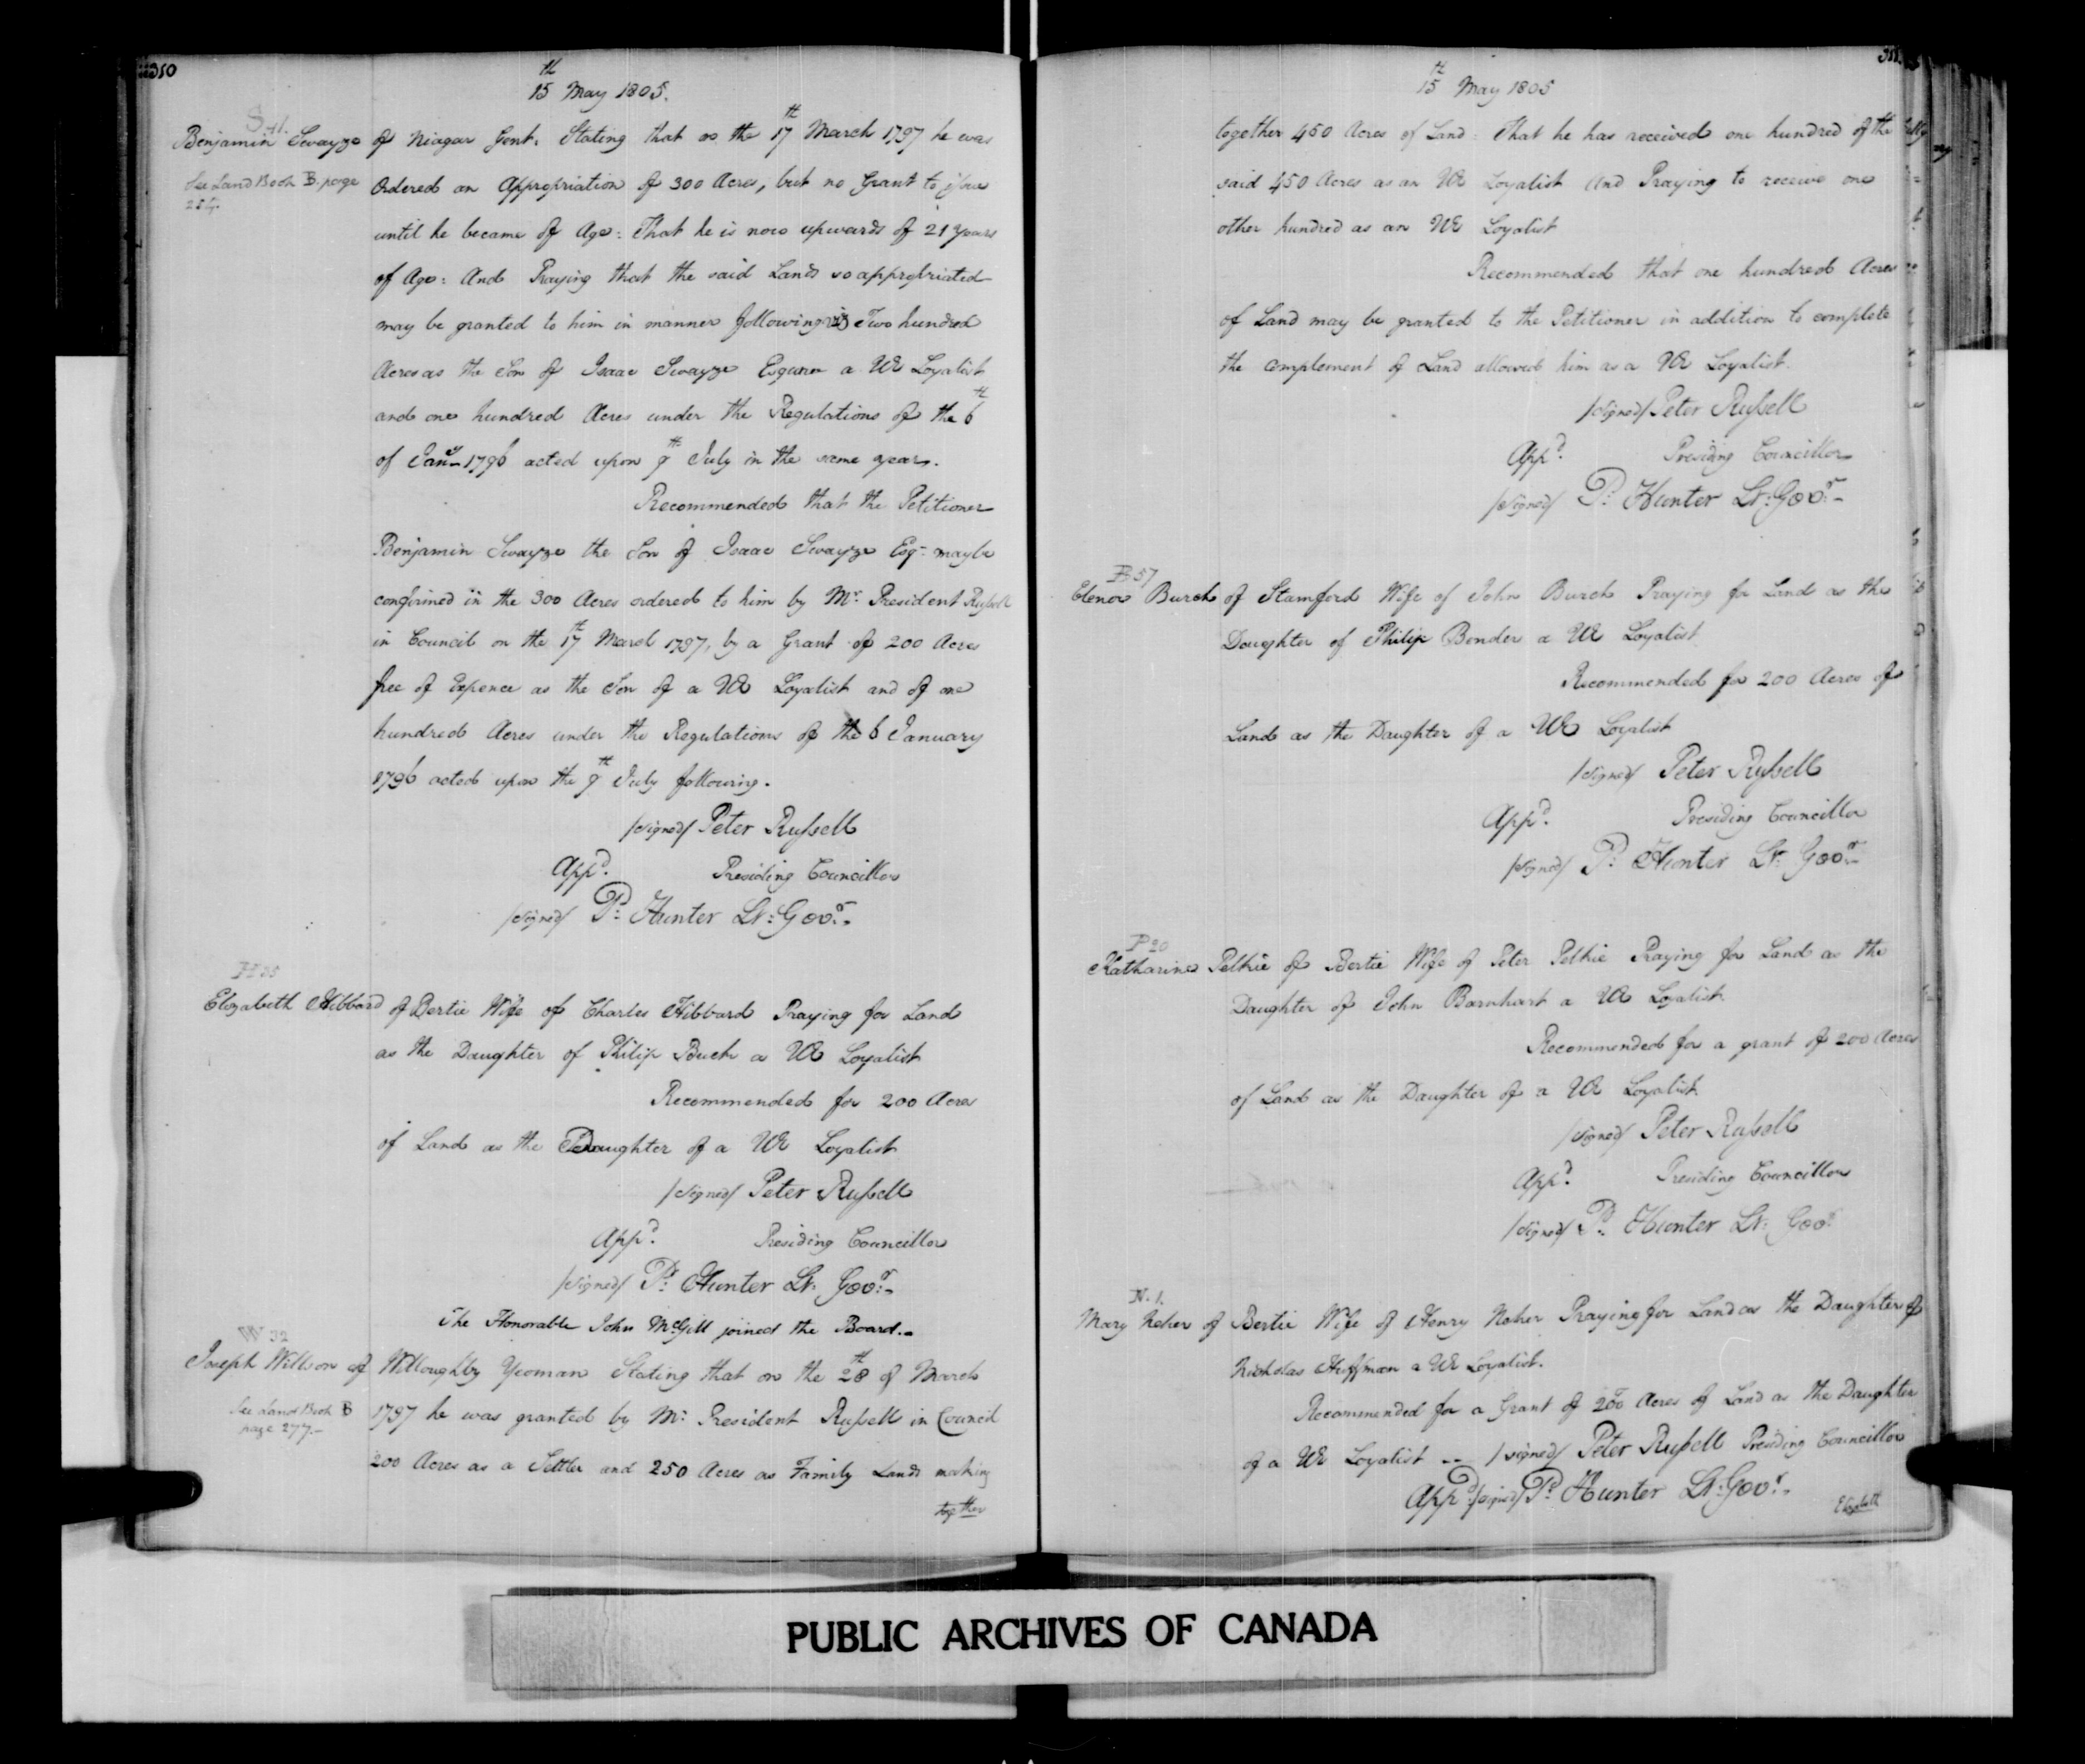 310
15th May 1805.
S 41.
Benjamin Swayze of Niagar Gent: Stating that on the 17th March 1797 he was
See Land Book B. page
Ordered an Appropriation of 300 Acres, but no Grant to issue
until he became of Age: That he is now upwards of 21 years
of Age: And Praying that the said Lands so appropriated
may be granted to him in manner following viz Two hundred
Acres as the Son of Isaac Swayze Esquire a UE Loyalist
and one hundred Acres under the Regulations of the 6th
of Jany 1796 acted upon 9th July in the same year.
Recommended that the Petitioner
Benjamin Swayze the Son of Isaac Swayze Esqr may be
confirmed in the 300 Acres ordered to him by Mr. President Russell
in Council on the 17th March 1797, by a Grant of 200 Acres
free of Expence as the Son of a UE Loyalist and of one
hundred Acres under the Regulations of the 6 January
1796 acted upon the 9th July following.
/signed/ Peter Russell
Appd. Presiding Councillor
/signed/ P: Hunter Lt: Govr.
H 35
Elizabeth Hibbard of Bertie Wife of Charles Hibbard Praying for Land
as the Daughter of Philip Buck a UE Loyalist
Recommended for 200 Acres
of Land as the Daughter of a UE Loyalist
/signed/ Peter Russell
Appd. Presiding Councillor
/signed/ P: Hunter Lt. Govr.
The Honorable John McGill joined the Board.
W 32
Joseph Willson of Willoughby Yeoman Stating that on the 28th of March
See Land Book B
page 277.
1797 he was granted by Mr. President Russell in Council
200 Acres as a Settler and 250 Acres as Family Lands making
together
311
15th May 1805
together 450 Acres of Land: That he has received one hundred of the
said 450 Acres as an UE Loyalist And Praying to receive one
other hundred as an UE Loyalist
Recommended that one hundred Acres
of Land may be granted to the Petitioner in addition to complete
the complement of Land allowed him as a UE Loyalist.
/signed/ Peter Russell
Appd. Presiding Councillor
/signed/ P: Hunter Lt: Govr.
B 57
Elenor Burch of Stamford Wife of John Burch Praying for Land as the
Daughter of Philip Bender a UE Loyalist
Recommended for 200 Acres of
Land as the Daughter of a UE Loyalist
/signed/ Peter Russell
Appd. Presiding Councillor
/signed/ P: Hunter Lt. Govr.
P 20
Katharine Pelkie of Bertie Wife of Peter Pelkie Praying for Land as the
Daughter of John Barnhart a UE Loyalist
Recommended for a grant of 200 Acres
of Land as the Daughter of a UE Loyalist
/signed/ Peter Russell
Appd. Presiding Councillor
/signed/ P. Hunter Lt: Govr
N. 1.
Mary Neher of Bertie Wife of Henry Neher Praying for Land as the Daughter of
Nicholas Huffman a UE Loyalist.
Recommended for a Grant of 200 Acres of Land as the Daughter
of a UE Loyalist -- /signed/ Peter Russell Presiding Councillor
Appd. /signed/ P. Hunter Lt: Govr.
Elizabeth
PUBLIC ARCHIVES OF CANADA